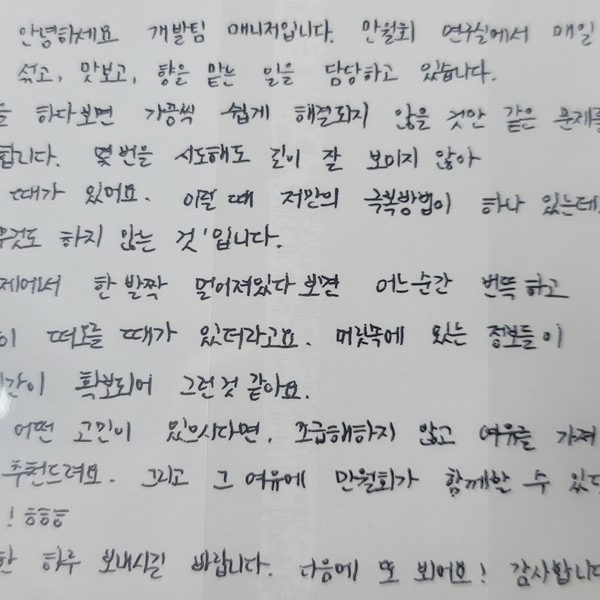 안녕하세요 개발팀 매니저입니다. 만월회 연구실에서 매일
섞고, 맛보고, 향을 맡는 일을 담당하고 있습니다.
를 하다보면 가끔씩 쉽게 해결되지 않을 것만 같은 문제를
합니다. 몇 번을 시도해도 길이 잘 보이지 않아
때가 있어요. 이럴 때 저만의 극복방법이 하나 있는데
무것도 하지 않는 것'입니다.
제에서 한 발짝 멀어져있다 보면 어느순간 번뜩 하고
이 떠오를 때가 있더라고요. 머릿속에 있는 정보들이
간이 확보되어 그런것 같아요.
어떤 고민이 있으시다면, 조급해하지 않고 여유를 가져
추천드려요. 그리고 그 여유에 만월회가 함께할 수 있다
! ㅎㅎㅎ
한 하루 보내시길 바랍니다. 다음에 또 뵈어요! 감사합니다